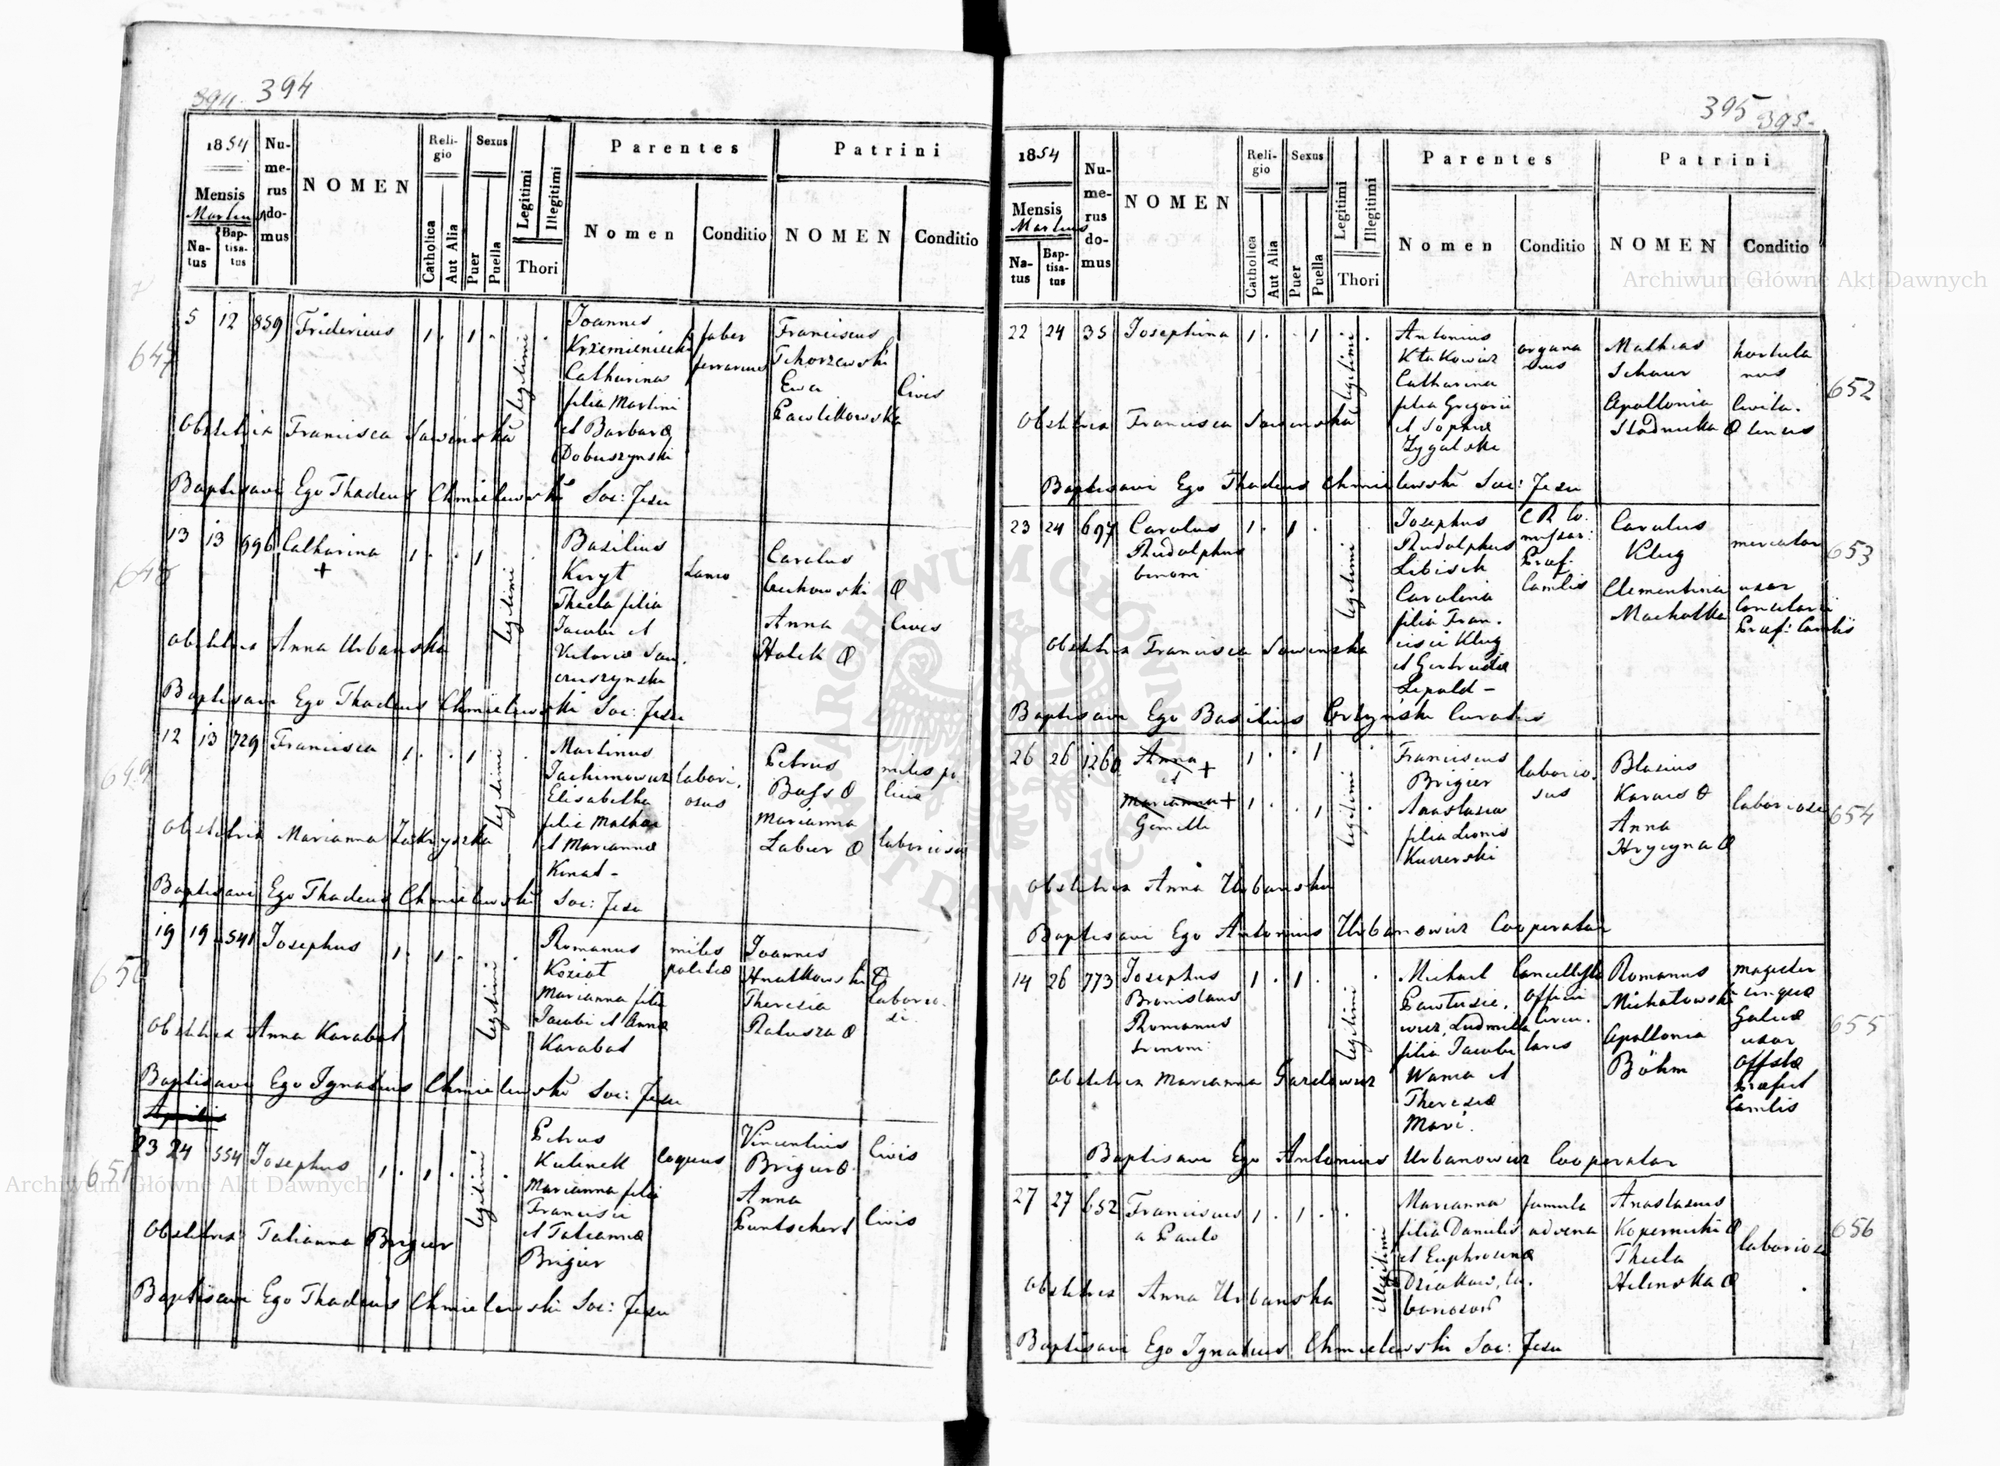 394. 394
1854
Mensis
Martius
Natus
Baptisatus
Numerus domus
NOMEN
Religio
Catholica
Aut Alia
Sexus
Puer
Puella
Legitimi
Illegitimi
Thori
Parentes
Nomen
Conditio
Patrini
NOMEN
Conditio
647
5 12 859 Fridericus 1 . 1 . legitimi
Joannes
Krzemieniecki
Catharina
filia Martini
et Barbarae
Dobuszynski
faber
ferrarius
Franciscus
Tchorzewski
Ewa
Pawlikowska
Civis
Obstetrix Francisca Sawinska
Baptisavi Ego Thadeus Chmielewski Soc: Jesu
648
13 13 996 Catharina + 1 . . 1 legitimi
Basilius
Kiryt
Thecla filia
Jacobi et
Lanio
Carolus
Anna
Holek
Civis
Obstetrix Anna Urbanska
Baptisavi Ego Thadeus Chmielewski Soc: Jesu
649
12 13 729 Francisca 1 . . 1 legitimi
Martinus
Jachimowicz
Elisabetha
filia Mathiae
et Mariannae
Kinal -
laboriosus
Petrus
Marianna
laboriosa
Obstetrix Marianna Zakryszka
Baptisavi Ego Thadeus Chmielewski Soc: Jesu
650
19 19 541 Josephus 1 . 1 . legitimi
Romanus
Koziot
Marianna filia
Jacobi et Annae
Karabat
miles
politiae
Joannes
Hnatkowski
Theresia
Ratusza
laboriosi
Obstetrix Anna Karabat
Baptisavi Ego Ignatius Chmielewski Soc: Jesu
Aprilis
651
23 24 554 Josephus 1 . 1 . legitimi
Petrus
Kulinek
Marianna filia
Francisci
et Tatiannae
Brigier
coquus
Vincentius
Brigier
Anna
Puntschert
Civis
Civis
Obstetrix Tatianna Brigier
Baptisavi Ego Thadeus Chmielewski Soc: Jesu
395 395.
1854
Mensis
Martius
Natus
Baptisatus
Numerus domus
NOMEN
Religio
Catholica
Aut Alia
Sexus
Puer
Puella
Legitimi
Illegitimi
Thori
Parentes
Nomen
Conditio
Patrini
NOMEN
Conditio
652
22 24 35 Josephina 1 . . 1 legitimi
Antonius
Kłakowicz
Catharina
filia Gregorii
et Sophiae
Zygalski
Mathias
Schauer
Apollonia
Stadnicka
hortulanus
Obstetrix Francisca Sawinska
Baptisavi Ego Thadeus Chmielewski Soc: Jesu
653
23 24 697 Carolus 1 . 1 . legitimi
Rudolphus
binomi
Josephus
Rudolphus
Libisch
Carolina
filia Francisci Klug
et Gertrudis
Lepold -
Carolus
Klug
Clementina
Machatka
mercator
uxor
Obstetrix Francisca Sawinska
Baptisavi Ego Basilius Curatus
654
26 26 1260 Anna + 1 . . 1 legitimi
et
Marianna + 1 . . 1
Gemelli
Franciscus
Brigier
Anastasia
filia Leonis
Kuczerski
laboriosus
Blasius
Karas
Anna
Hrycyna
laboriosi
Obstetrix Anna Urbanska
Baptisavi Ego Antonius Urbanowicz Cooperator
655
14 26 773 Josephus 1 . 1 . legitimi
Bronislaus
Romanus
trinomi
Michael
Pawlusiewicz, Ludmilla
filia Jacobi
Wania et
Theresiae
Mari.
Cancellista
officii
circularis
Romanus
Michałowski
Apollonia
Böhm
magister
uxor
Obstetrix Marianna Gazdowicz
Baptisavi Ego Antonius Urbanowicz Cooperator
656
27 27 652 Franciscus 1 . 1 . . illegitimi
a Paulo
Marianna
filia Danielis
et Euphrosinae
famula
advena
Anastasius
Kopernicki
Thecla
Hilinska
laboriosi
Obstetrix Anna Urbanska
Baptisavi Ego Ignatius Chmielewski Soc: Jesu
Archiwum Główne Akt Dawnych
Archiwum Główne Akt Dawnych
ARCHIWUM GŁÓWNE AKT DAWNYCH